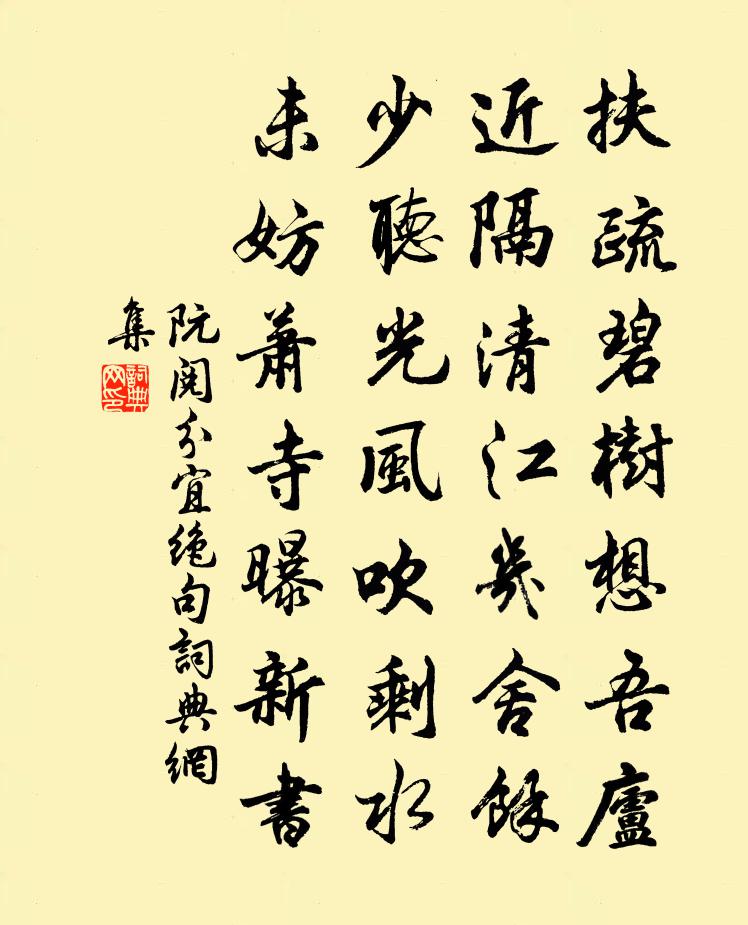 扶疏碧樹想吾廬
近隔清江幾舍餘
少聽光風吹剩水
未妨蕭寺曝新書
阮閱分宜絶句詞典網
集
詞典
网印